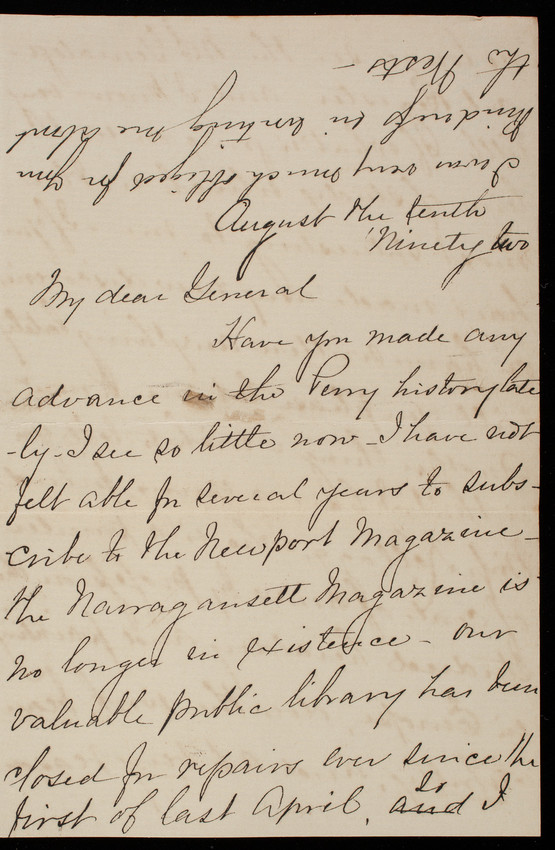 I was very much obliged for your
kindness in writing me about
the Wests —
August the tenth
'Ninety two
My dear General
Have you made any
advance in the Perry history late
-ly - I see so little now - I have not
felt able for several years to subs-
cribe to the Newport Magazine -
the Narragansett Magazine is
no longer in existence - our
valuable public library has been
closed for repairs ever since the
first of last April. and So I